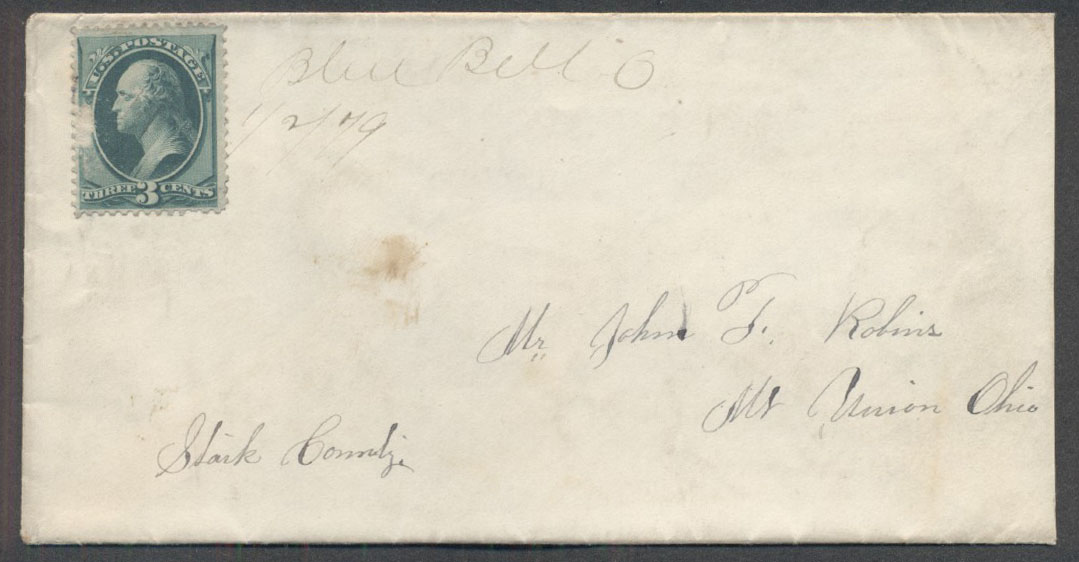 U.S. POSTAGE
THREE 3 CENTS
Blue Bell O
1/2/79
Mr. John F. Robins
Mt Union Ohio
Stark County.